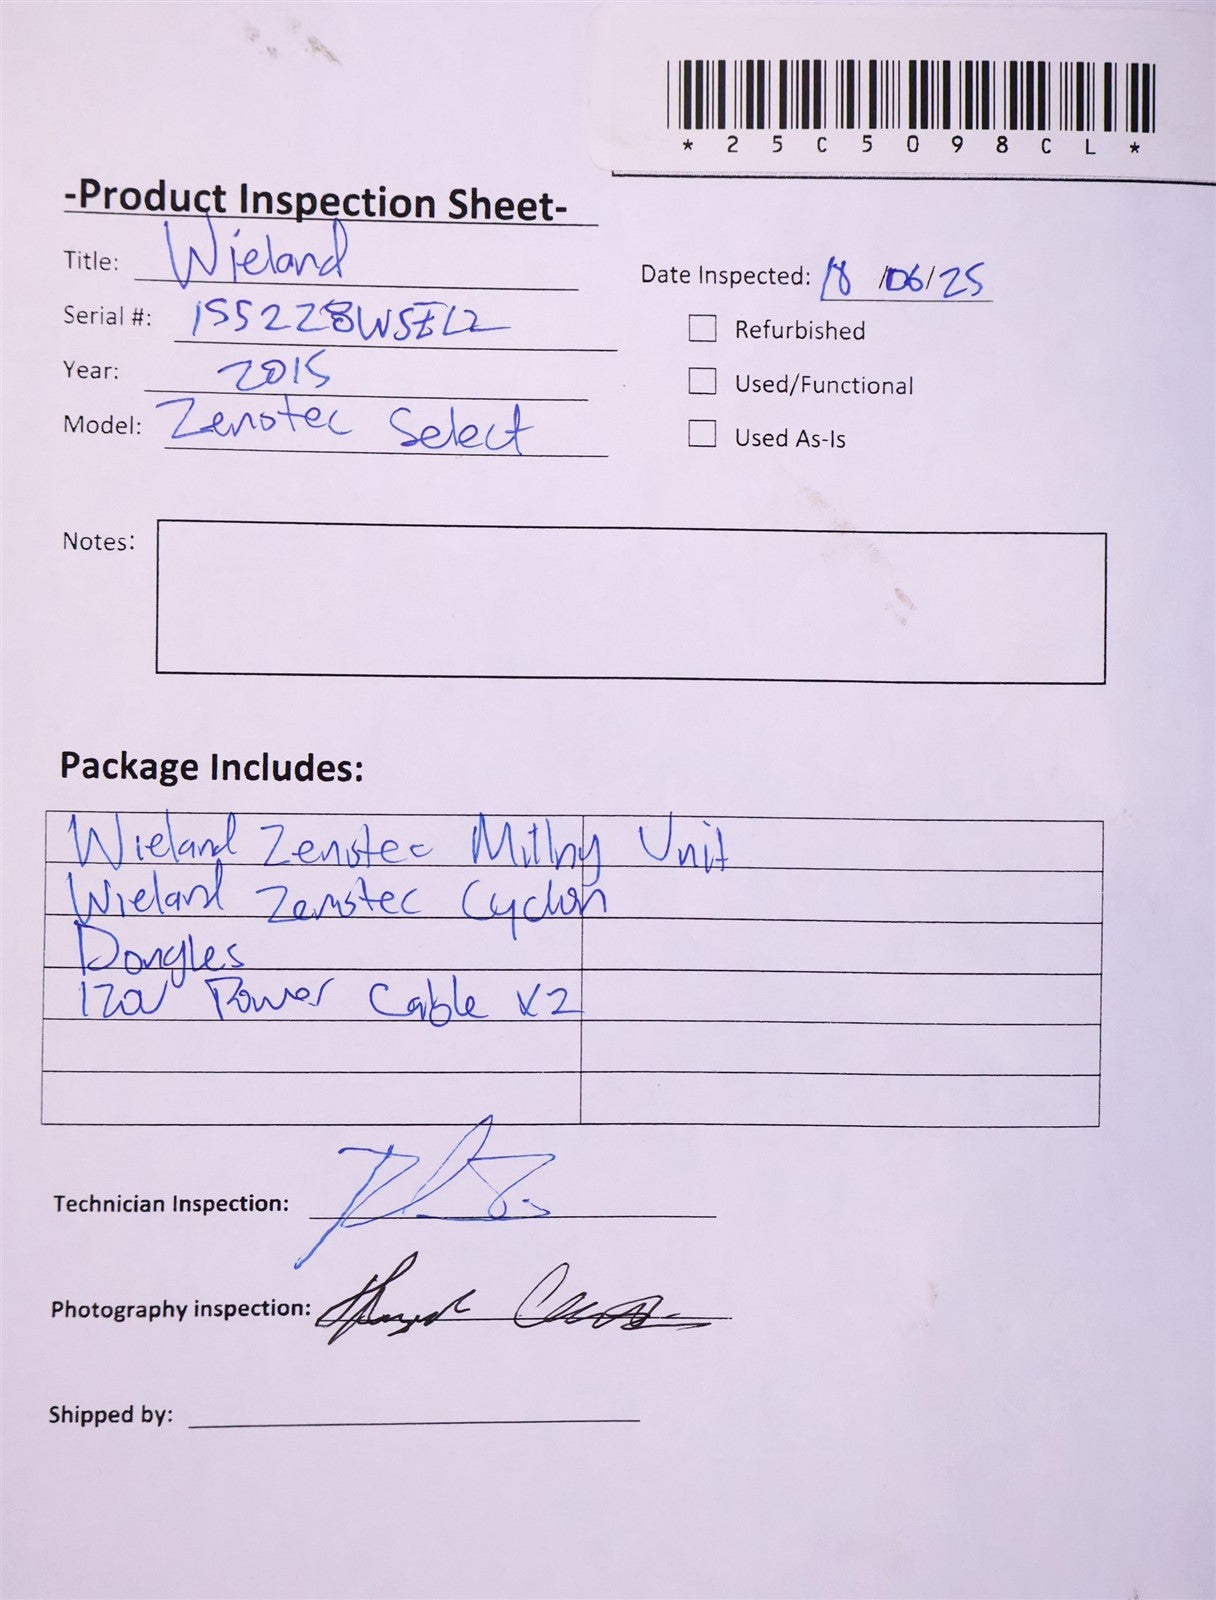 * 2 5 C 5 0 9 8 C L *
-Product Inspection Sheet-
Title: Wieland
Date Inspected: 18 /06/25
Serial #:
Refurbished
Year: 2015
Used/Functional
Model: Zenotec Select
Used As-Is
Notes:
Package Includes:
Wieland Zenotec Milling Unit
Wieland Zenotec Cyclon
Dongles
120V Power Cable x2
Technician Inspection:
Photography inspection:
Shipped by: